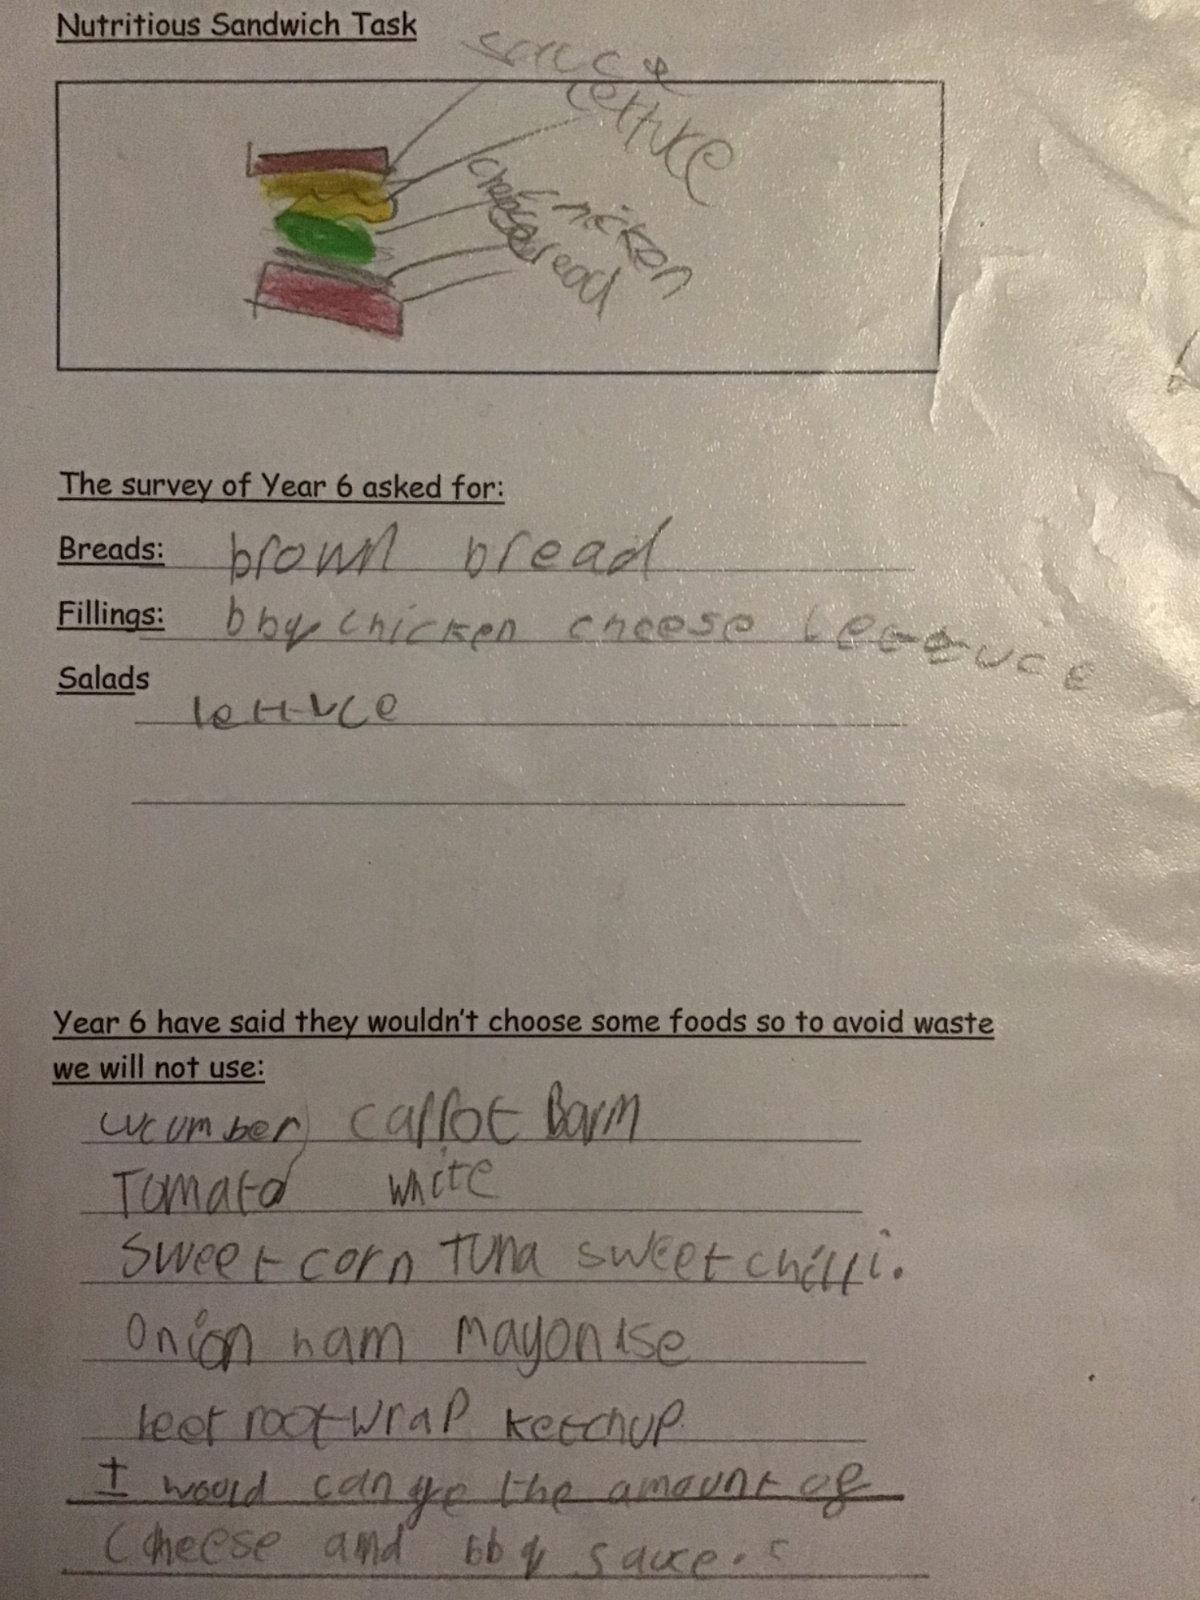 Nutritious Sandwich Task
sauce
lettuce
chicken
cheese
bread
The survey of Year 6 asked for:
Breads: brown bread
Fillings: bbq chicken cheese lettuce
Salads
lettuce
Year 6 have said they wouldn't choose some foods so to avoid waste
we will not use:
cucumber carrot Barm
Tomato white
Sweet corn Tuna sweet chilli.
Onion ham mayonise
beet root wrap ketchup.
I would cangye the amount of
cheese and bbq sauce.